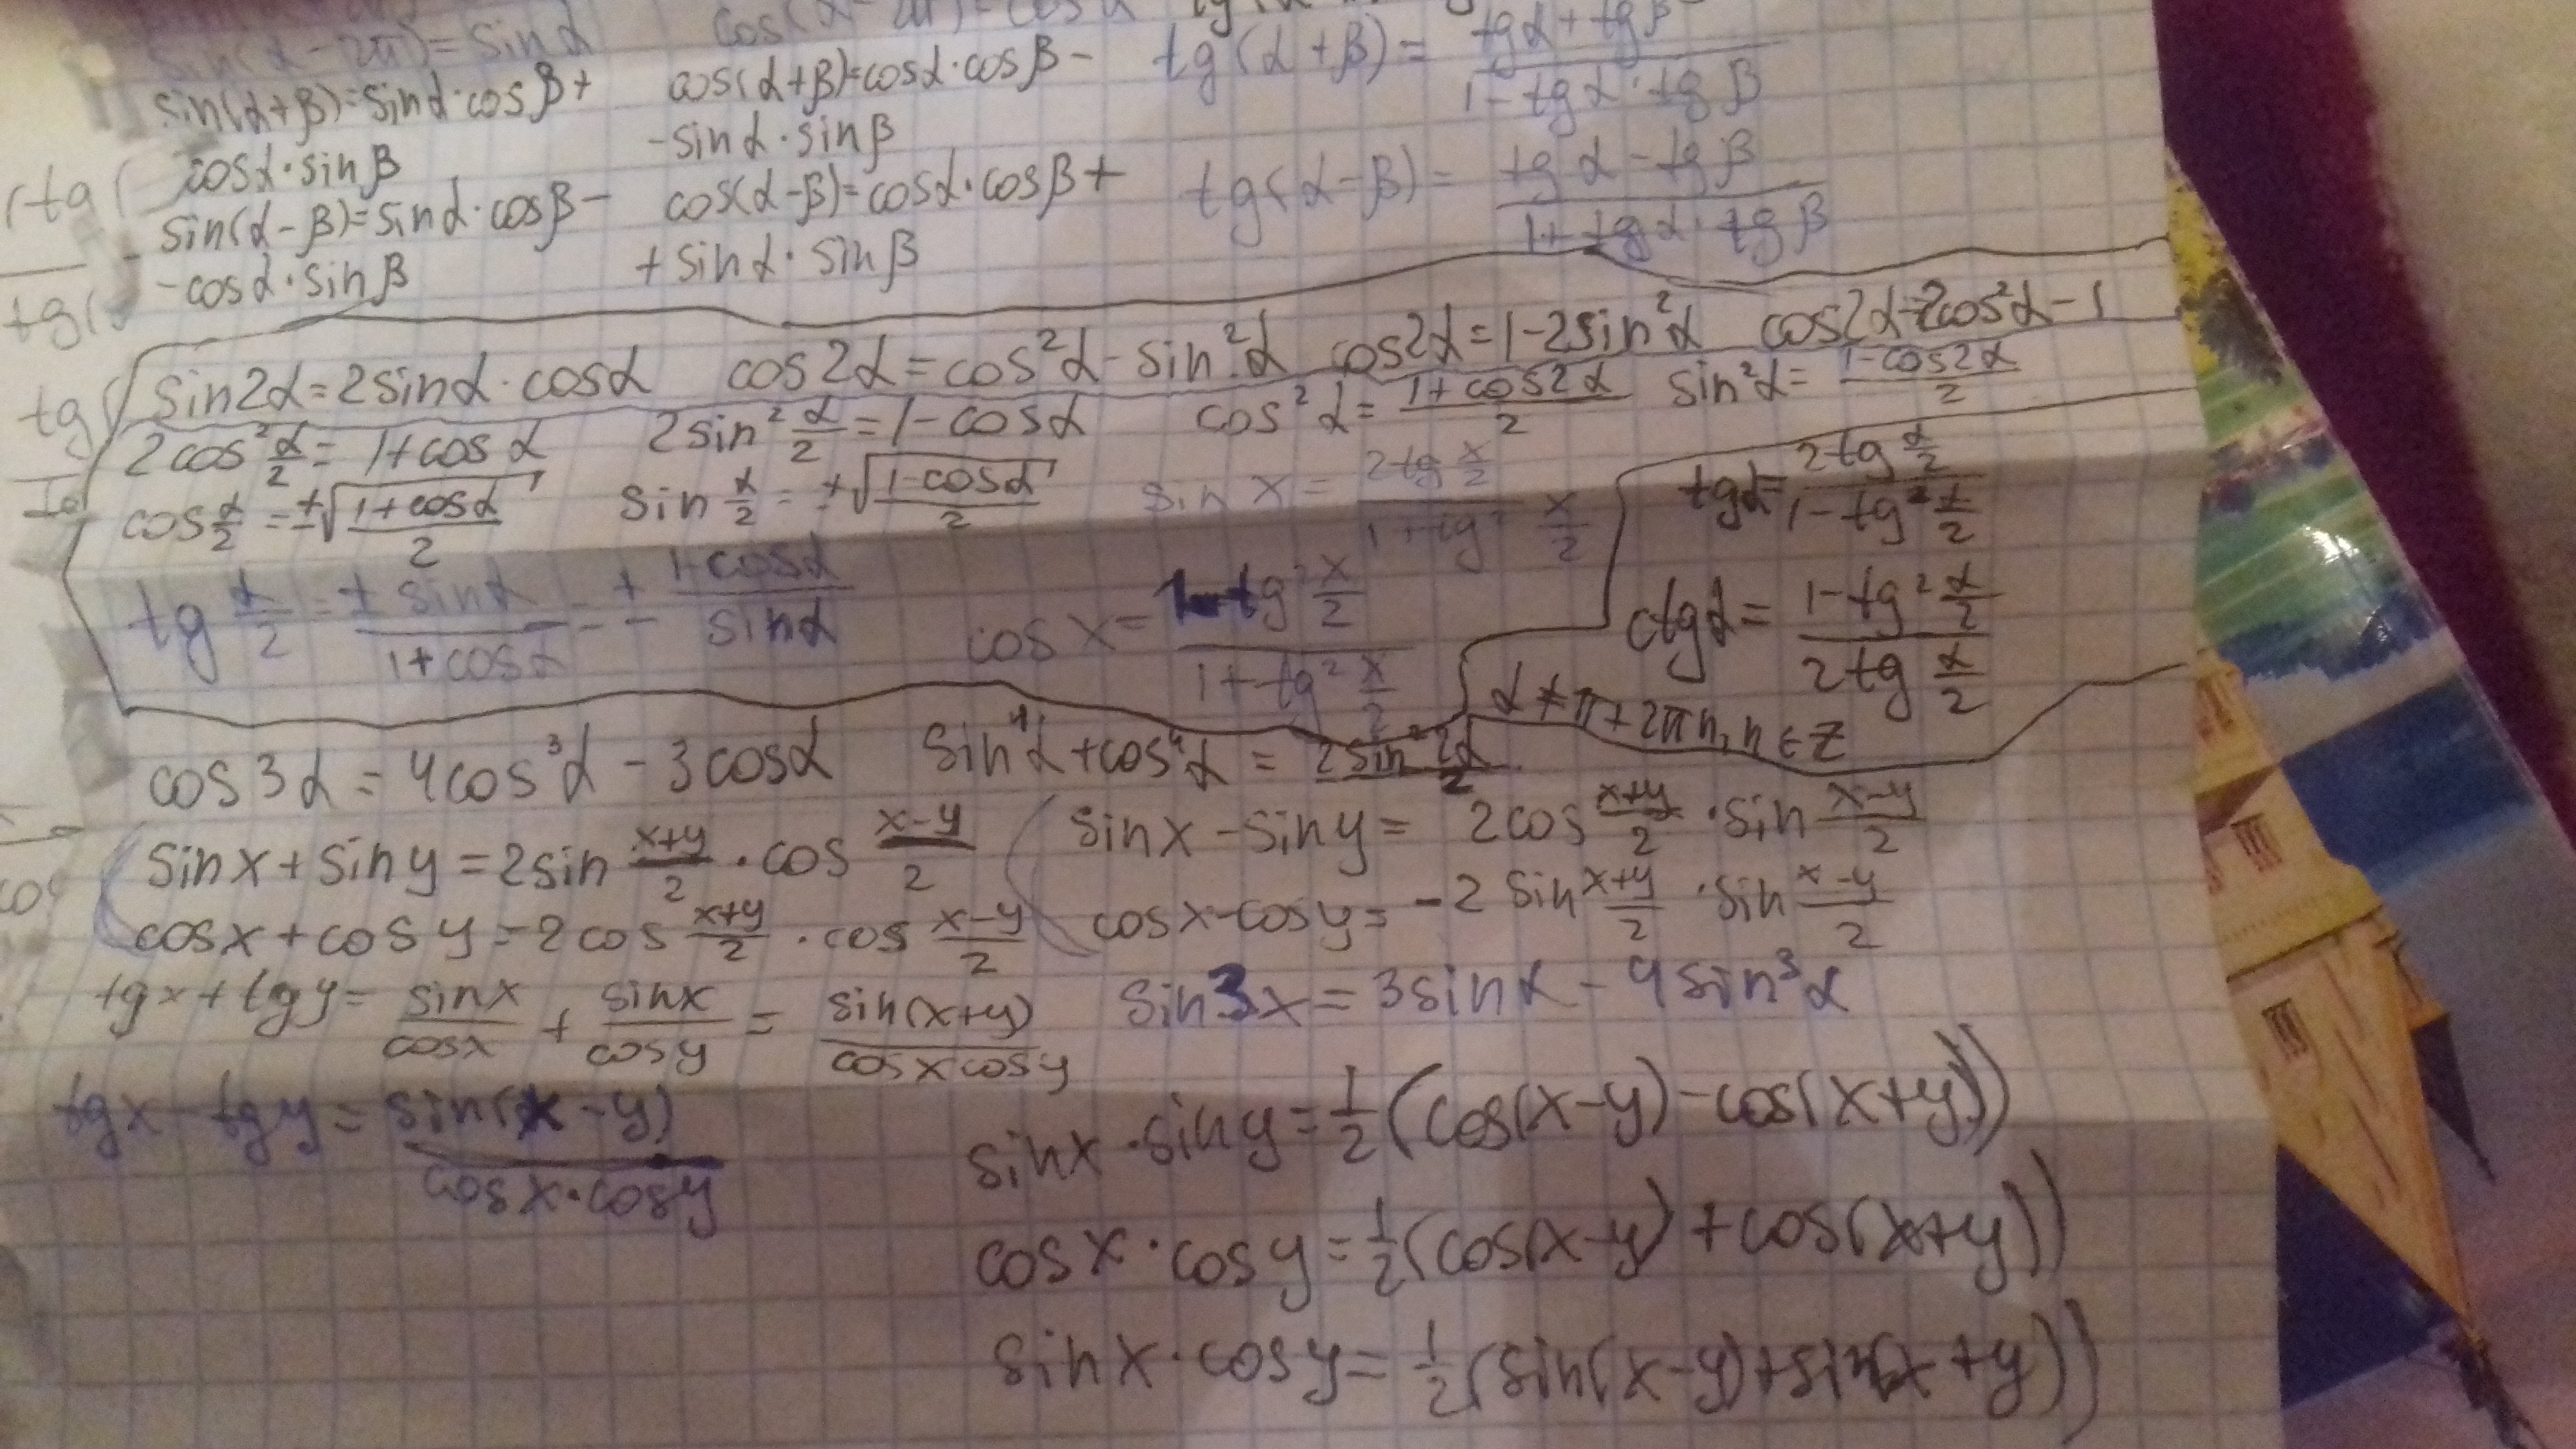 sin(α-2π)=sinα cos(α-2π)=cosα
sin(α+β)=sinα·cosβ+ cos(α+β)=cosα·cosβ- tg(α+β)= (tgα+tgβ)/(1-tgα·tgβ)
cosα·sinβ -sinα·sinβ
sin(α-β)=sinα·cosβ- cos(α-β)=cosα·cosβ+ tg(α-β)= (tgα-tgβ)/(1+tgα·tgβ)
-cosα·sinβ +sinα·sinβ
sin2α=2sinα·cosα cos2α=cos²α-sin²α cos2α=1-2sin²α cos2α=2cos²α-1
2cos²α/2=1+cosα 2sin²α/2=1-cosα cos²α=(1+cos2α)/2 sin²α=(1-cos2α)/2
cosα/2=±√((1+cosα)/2) sinα/2=±√((1-cosα)/2) sin x=(2tg x/2)/(1+tg² x/2) tgα=(2tg α/2)/(1-tg² α/2)
tg α/2=± sinα/(1+cosα)=± (1-cosα)/sinα cos x=(1-tg² x/2)/(1+tg² x/2) ctgα=(1-tg² α/2)/(2tg α/2)
α≠π+2πn, n∈Z
cos3α=4cos³α-3cosα sin⁴α+cos⁴α= (2sin²2α)/2
sinx+siny=2sin (x+y)/2·cos (x-y)/2 sinx-siny=2cos (x+y)/2·sin (x-y)/2
cosx+cosy=2cos (x+y)/2·cos (x-y)/2 cosx-cosy=-2sin (x+y)/2·sin (x-y)/2
tgx+tgy= sinx/cosx + sinx/cosy = sin(x+y)/cosxcosy sin3x=3sinα-4sin³α
tgx-tgy= sin(x-y)/cosx·cosy
sinx·siny=1/2(cos(x-y)-cos(x+y))
cosx·cosy=1/2(cos(x-y)+cos(x+y))
sinx·cosy=1/2(sin(x-y)+sin(x+y))